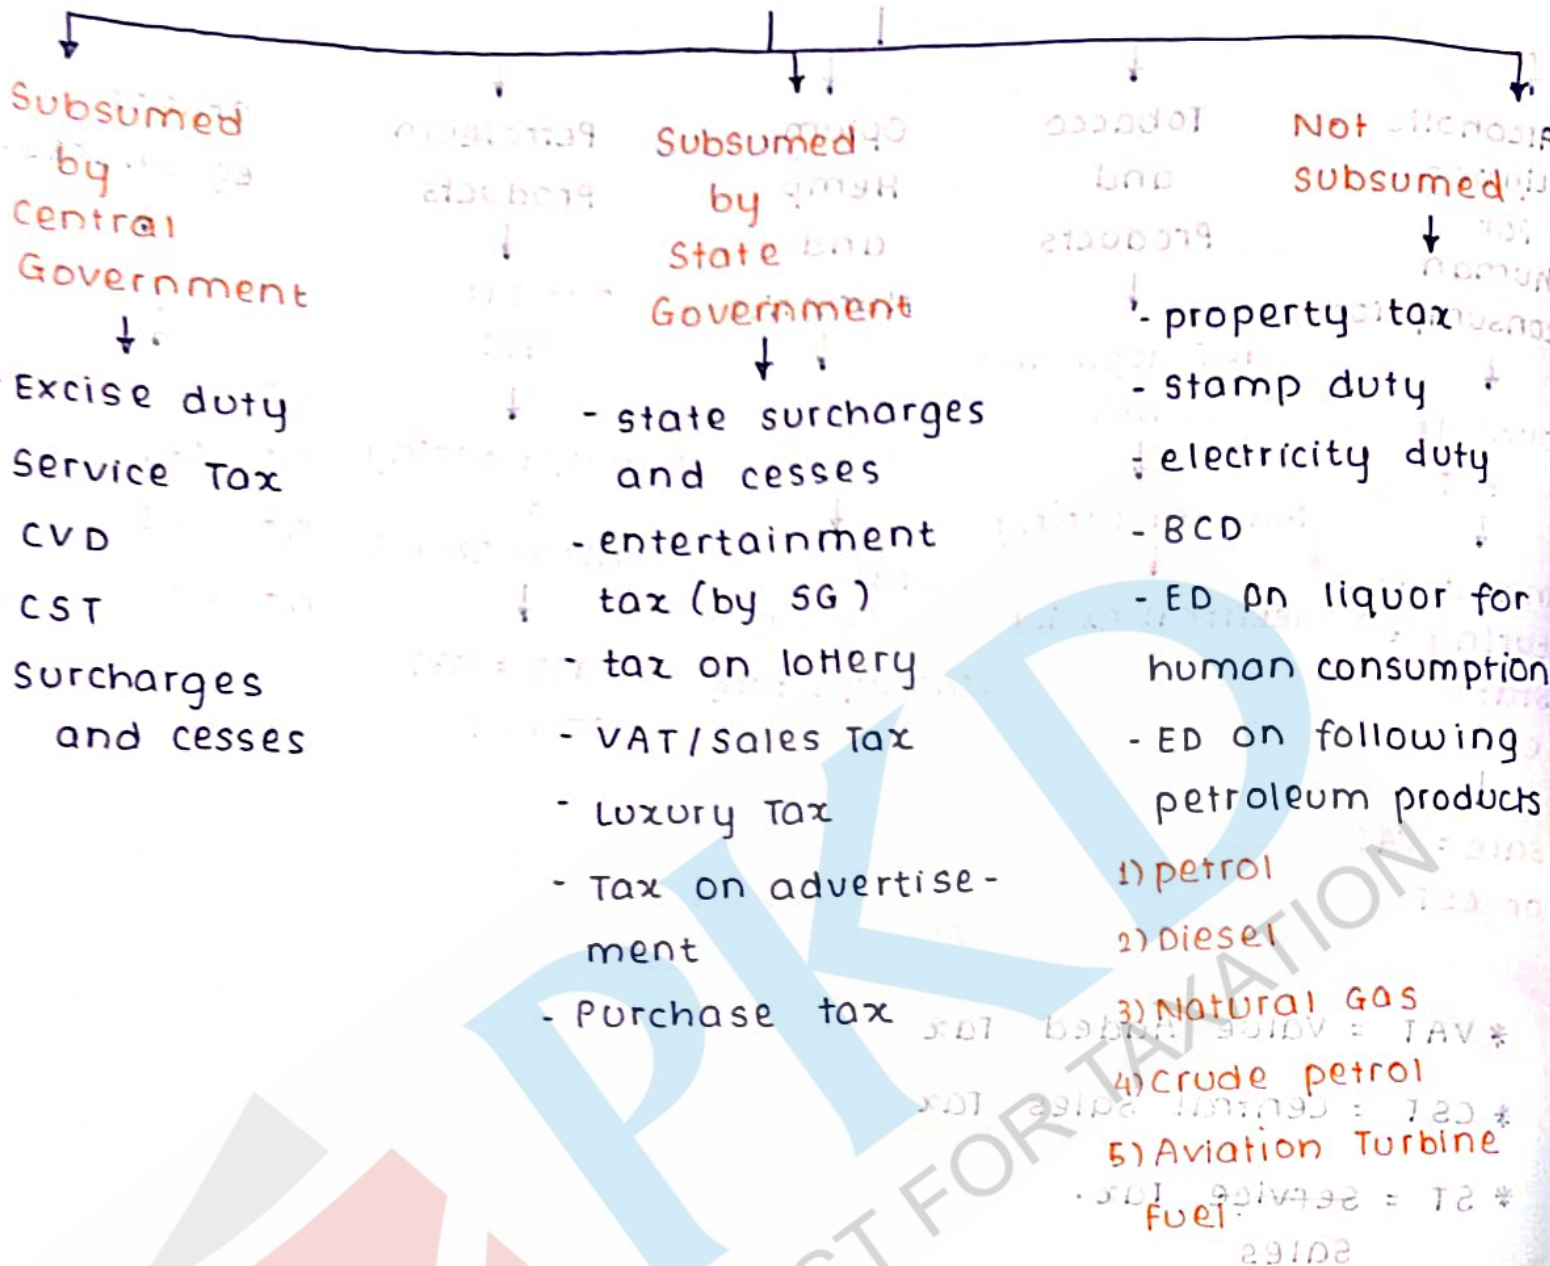 Subsumed
by
central
Government
Excise duty
Service Tax
CVD
CST
Surcharges
and cesses
Subsumed
by
State
Government
- state surcharges
and cesses
- entertainment
tax (by SG)
- tax on lottery
- VAT/Sales Tax
- Luxury Tax
- Tax on advertise-
ment
- Purchase tax
Not
subsumed
- property tax
- stamp duty
- electricity duty
- BCD
- ED on liquor for
human consumption
- ED on following
petroleum products
1) petrol
2) Diesel
3) Natural Gas
4) Crude petrol
5) Aviation Turbine
Fuel
PKD
FOR TAXATION